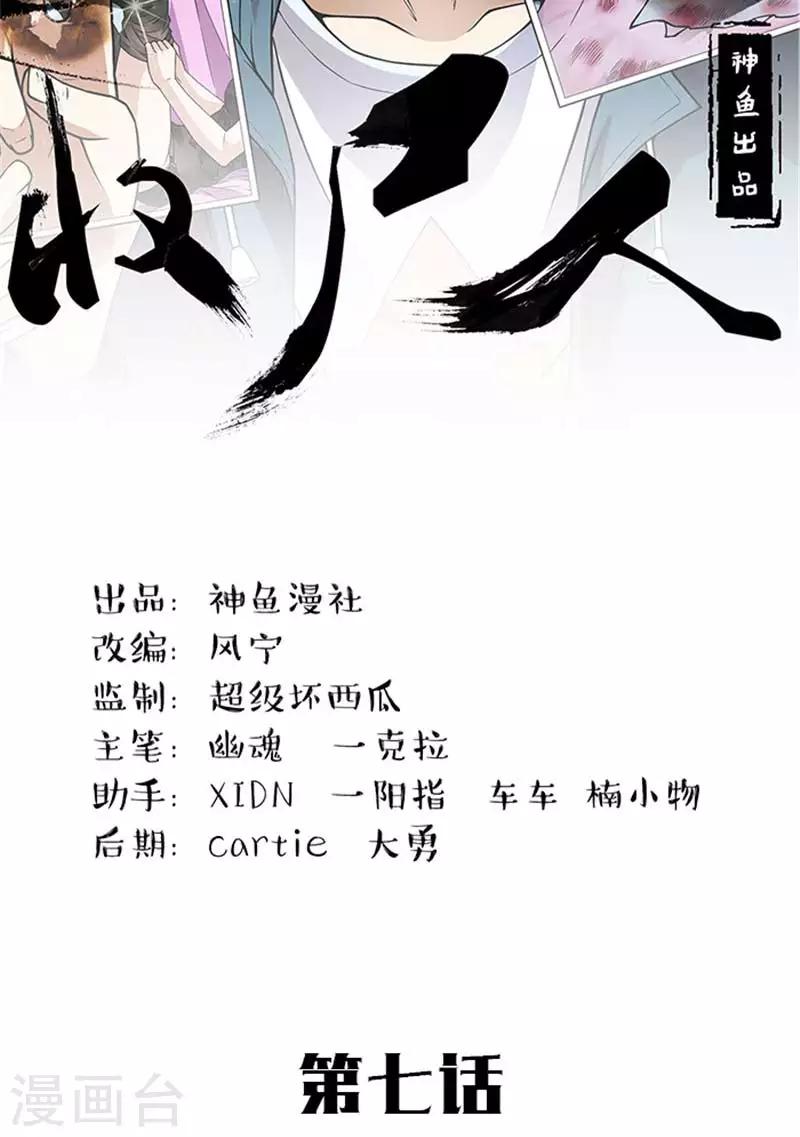 神鱼出品
收尸人
出品：神鱼漫社
改编：风宁
监制：超级坏西瓜
主笔：幽魂 一克拉
助手：XIDN 一阳指 车车 楠小物
后期：cartie 大勇
第七话
漫画台